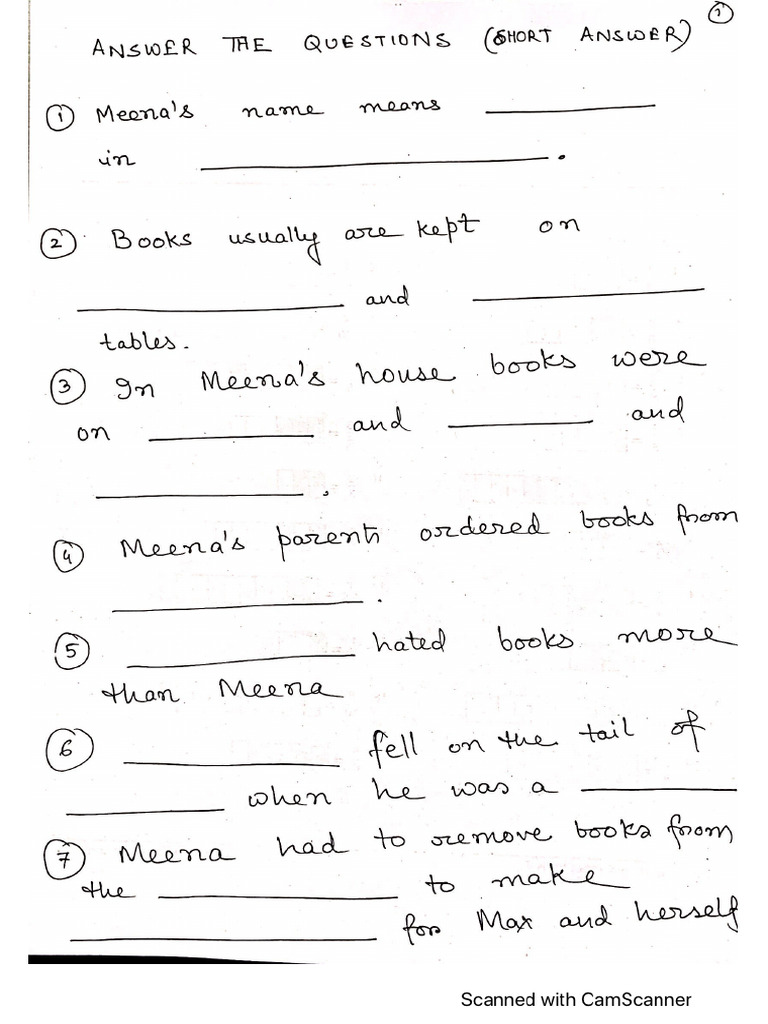 1
ANSWER THE QUESTIONS (SHORT ANSWER)
1 Meena's name means ________
in ________.
2 Books usually are kept on
________ and ________
tables.
3 In Meena's house books were
on ________ and ________ and
________.
4 Meena's parents ordered books from
________.
5 ________ hated books more
than Meena
6 ________ fell on the tail of
________ when he was a ________
7 Meena had to remove books from
the ________ to make
________ for Max and herself
Scanned with CamScanner